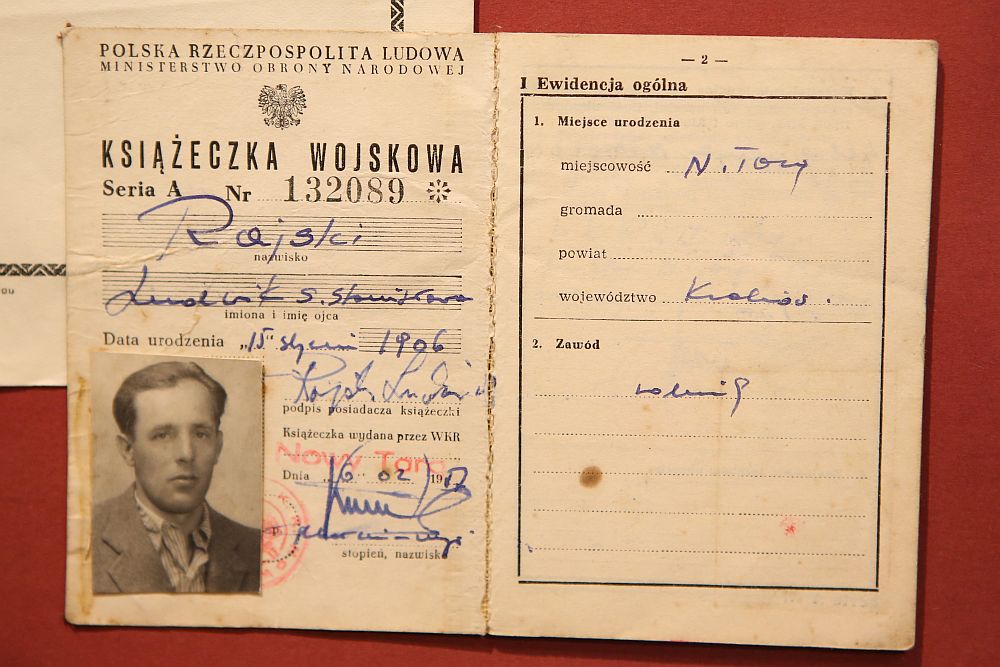 POLSKA RZECZPOSPOLITA LUDOWA
MINISTERSTWO OBRONY NARODOWEJ
KSIĄŻECZKA WOJSKOWA
Seria A Nr 132089
Rajski
nazwisko
Ludwik s. Stanisława
imiona i imię ojca
Data urodzenia „15" styczeń 1906
Rajski Ludwik
podpis posiadacza książeczki
Książeczka wydana przez WKR
Nowy Targ
Dnia 16 02 1957
stopień, nazwisko
— 2 —
I Ewidencja ogólna
1. Miejsce urodzenia
miejscowość N. Targ
gromada
powiat
województwo Kraków.
2. Zawód
rolnik